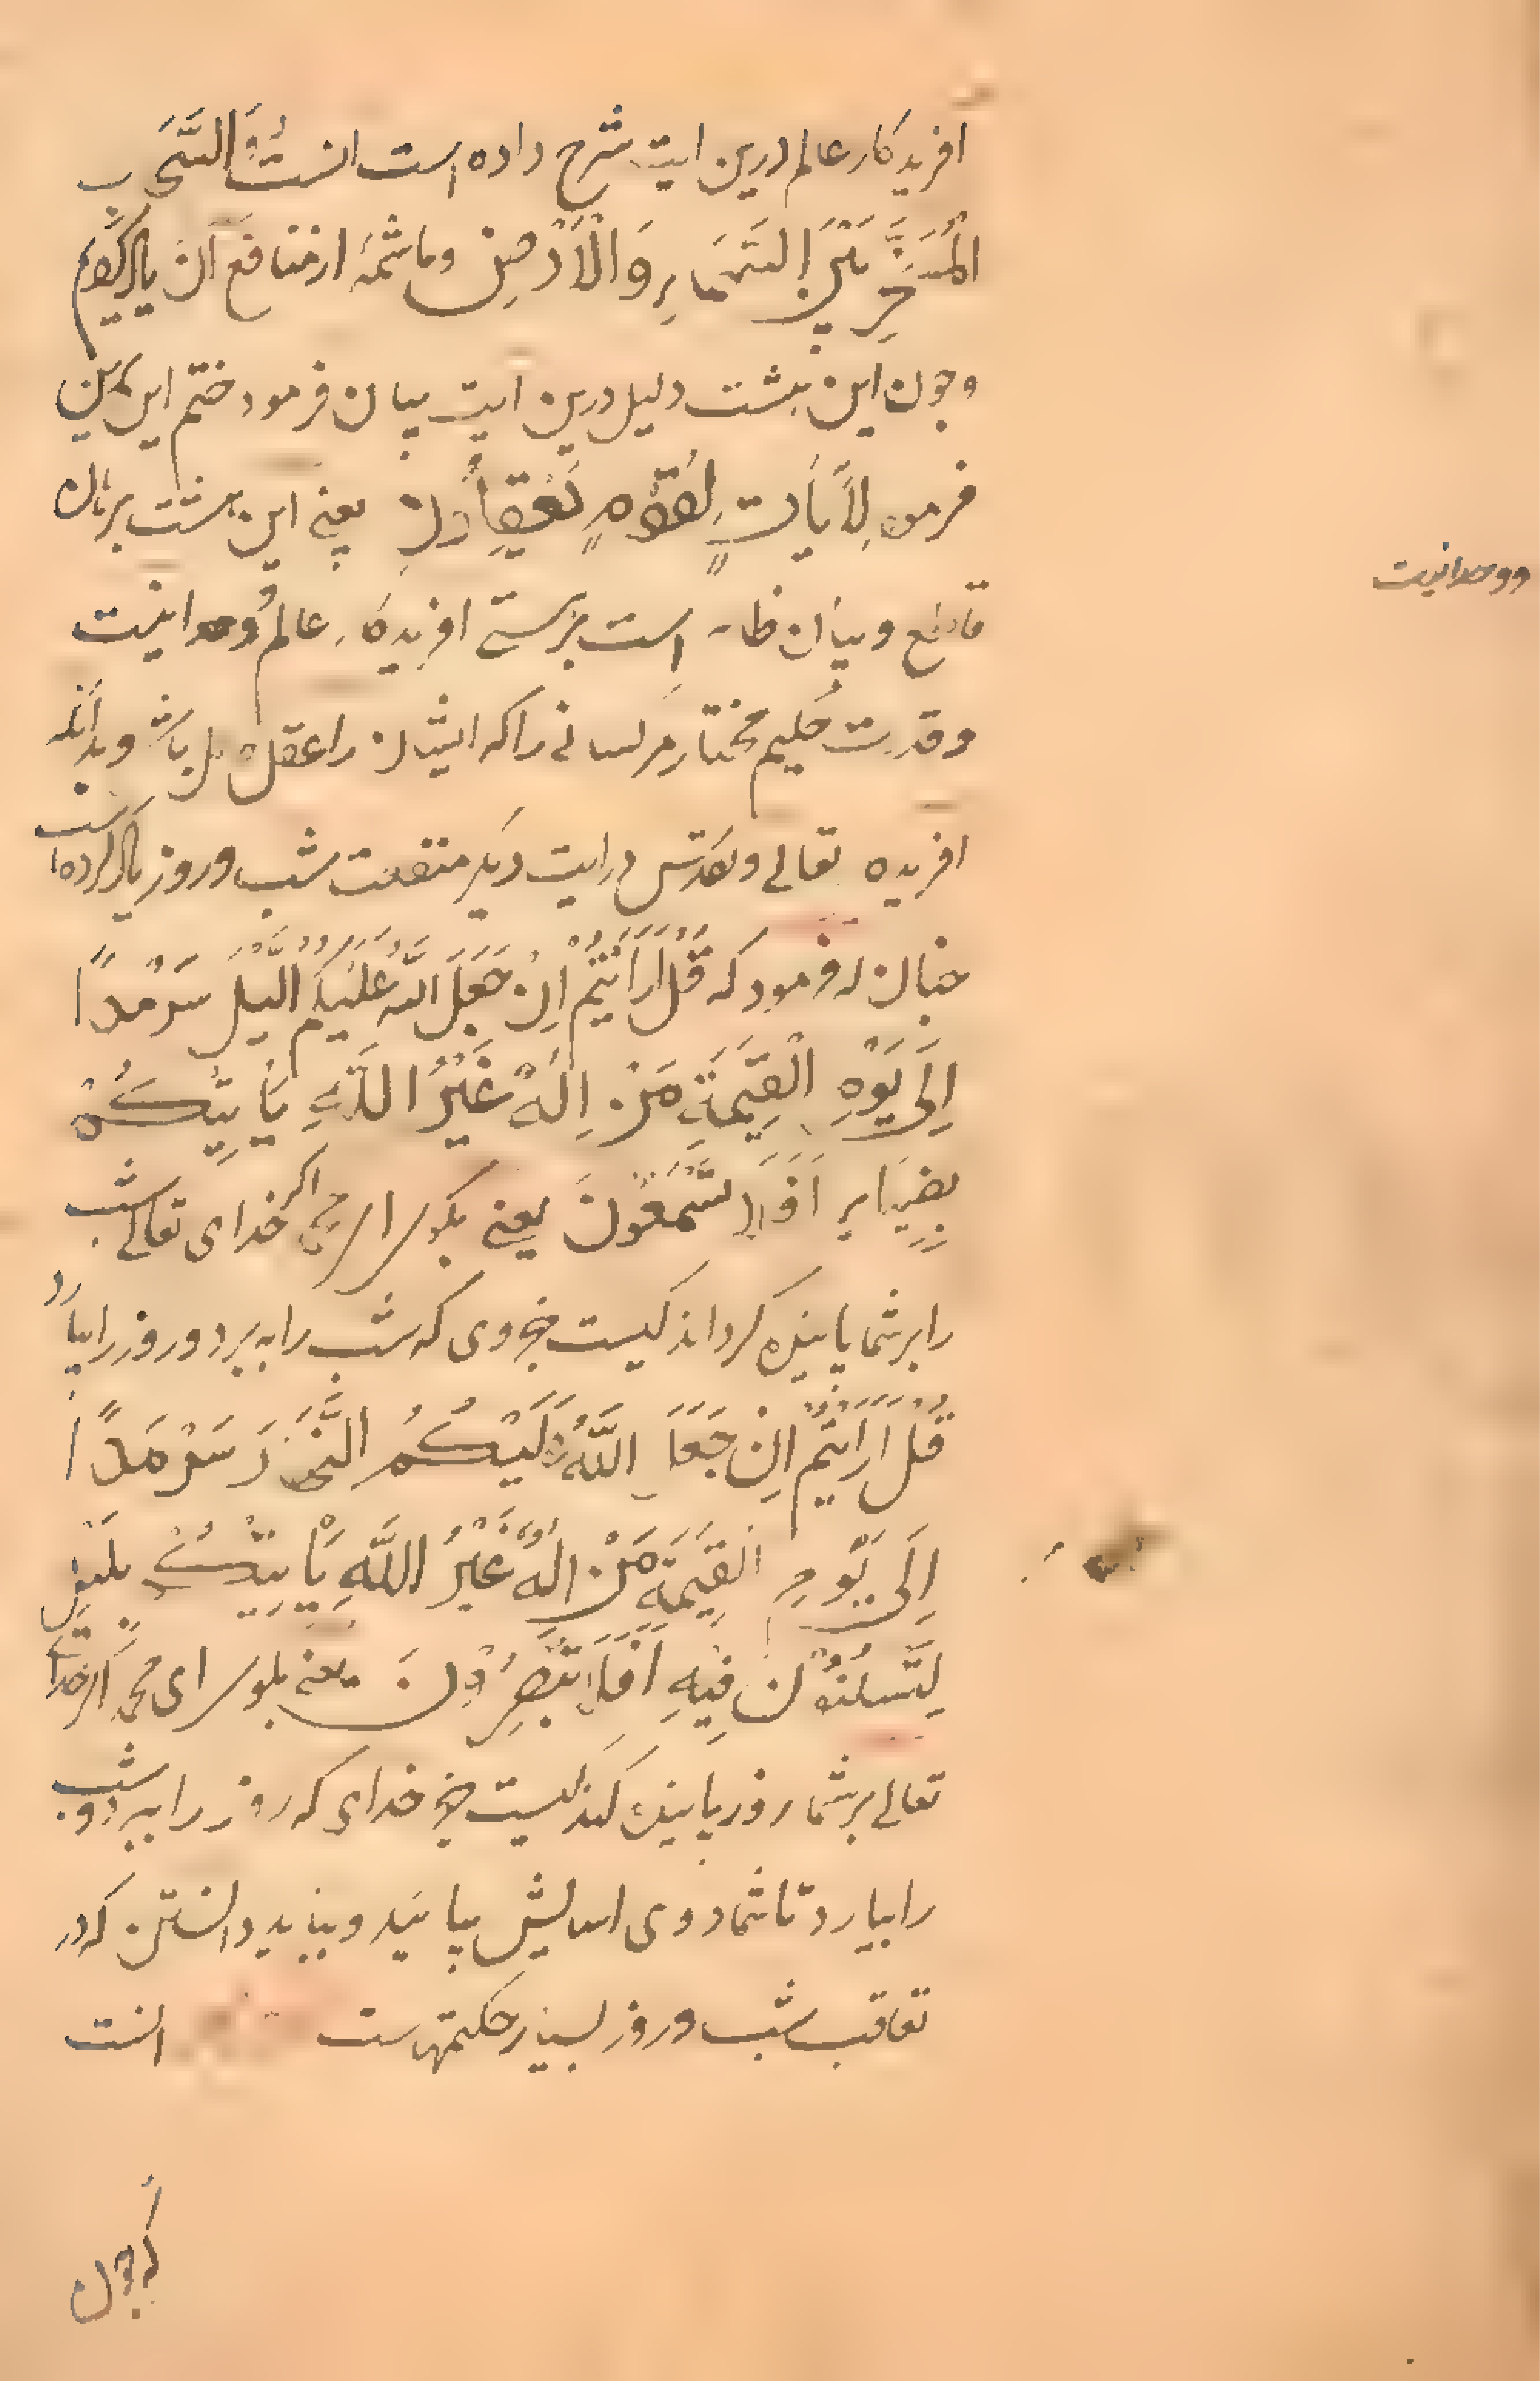 افریدکار عالم درین ایت شرح داده است انست وَالسَّحَابِ
الْمُسَخَّرِ بَيْنَ السَّمَاءِ وَالْاَرْضِ وما شمهٔ از منافع آن یاد کردیم
وچون این هشت دلیل درین ایت بیان فرمود ختم این برین
فرمود لَاٰیَاتٍ لِقَوْمٍ یَعْقِلُونَ یعنی این هشت برهان
قاطع وبیان ظاهر است برهستی افریدکار عالم ووحدانیت
وقدرت حکیم مختار مر کسانی را که ایشان را عقل کامل باشد وبدانکه
افریده تعالی وتقدس در ایت دیکر منفعت شب وروز یاد کرده است
چنان که فرمود که قُلْ اَرَاَیْتُمْ اِنْ جَعَلَ اللّٰهُ عَلَیْکُمُ الَّیْلَ سَرْمَدًا
اِلٰی یَوْمِ الْقِیٰمَةِ مَنْ اِلٰهٌ غَیْرُ اللّٰهِ یَاْتِیْکُمْ
بِضِیَاءٍ اَفَلَا تَسْمَعُونَ یعنی بکو ای محمد اکر خدای تعالی شب
را بر شما پاینده کرداند کیست جز وی که شب را ببرد وروز را بیارد
قُلْ اَرَاَیْتُمْ اِنْ جَعَلَ اللّٰهُ عَلَیْکُمُ النَّهَارَ سَرْمَدًا
اِلٰی یَوْمِ الْقِیٰمَةِ مَنْ اِلٰهٌ غَیْرُ اللّٰهِ یَاْتِیْکُمْ بِلَیْلٍ
تَسْکُنُونَ فِیْهِ اَفَلَا تُبْصِرُوْنَ یعنی بکو ای محمد اکر خدای
تعالی بر شما روز پاینده کند کیست جز خدای که روز را ببرد وشب
را بیارد تا شما در وی اسایش بیابید وبباید دانستن که در
تعاقب شب وروز بسیار حکمتهاست انست
که چون
ووحدانیت